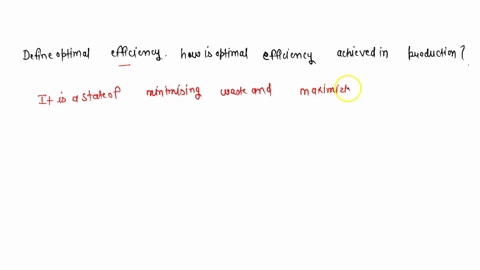 Define optimal efficiency. how is optimal efficiency achieved in production?
It is a state of minimising waste and maximizi